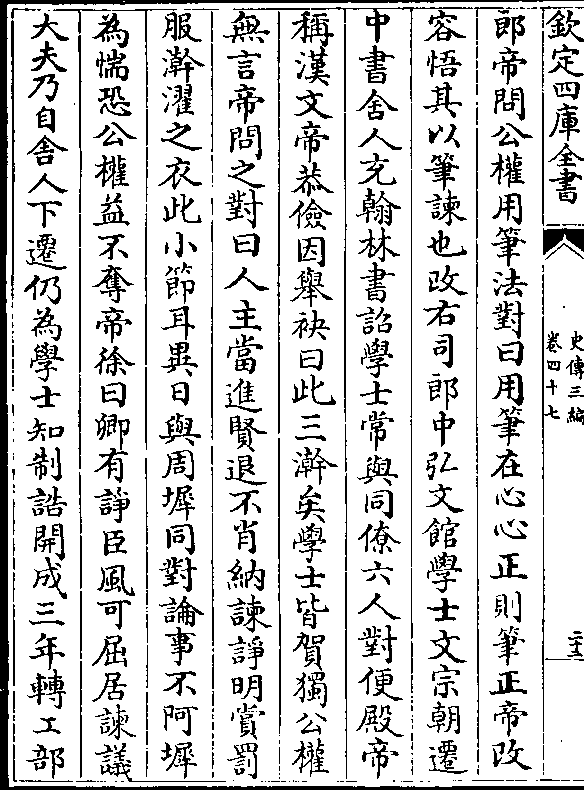 欽定四庫全書
史傳三編
卷四十七
郎帝問公權用筆法對曰用筆在心心正則筆正帝改
容悟其以筆諫也改右司郎中弘文館學士文宗朝遷
中書舍人充翰林書詔學士常與同僚六人對便殿帝
稱漢文帝恭儉因舉袂曰此三澣矣學士皆賀獨公權
無言帝問之對曰人主當進賢退不肖納諫諍明賞罰
服澣濯之衣此小節耳異日與周墀同對論事不阿墀
為惴恐公權益不奪帝徐曰卿有諍臣風可屈居諫議
大夫乃自舍人下遷仍為學士知制誥開成三年轉工部